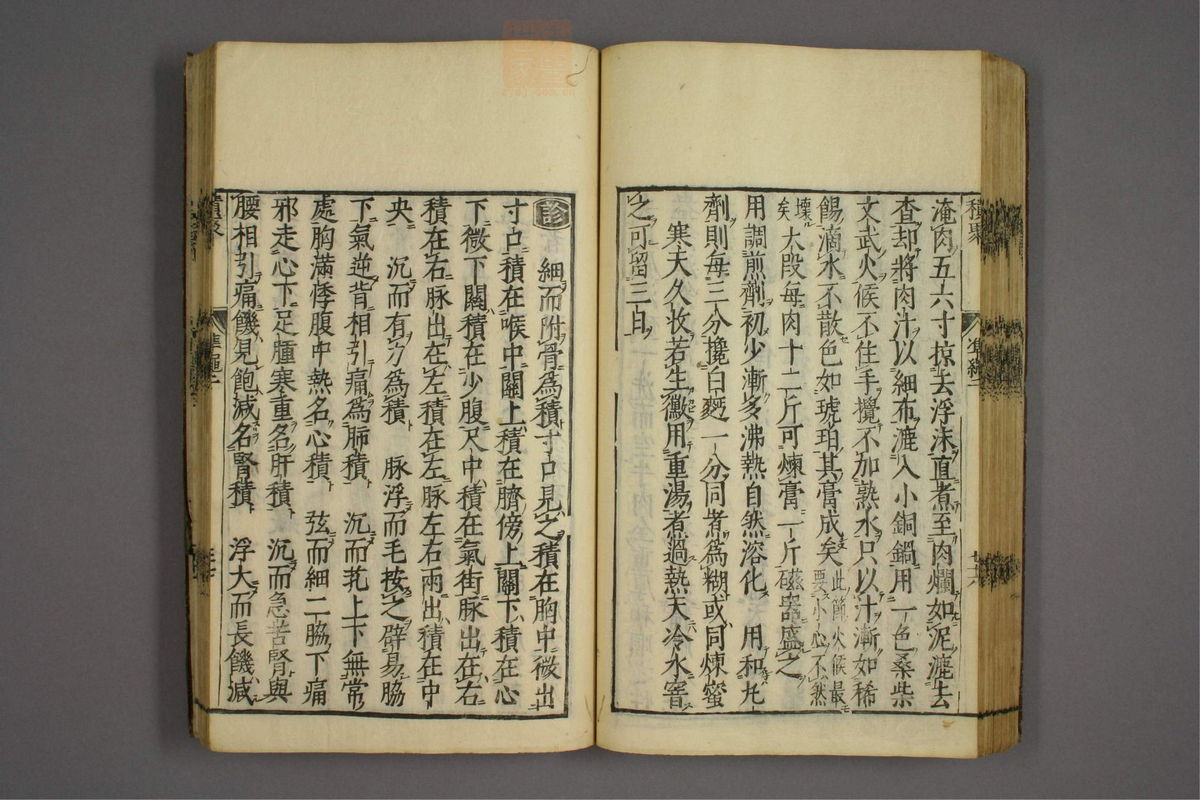 淹肉五六寸掠去浮沫直煮至肉爛如泥漉去
查却將肉汁以細布漉入小銅鍋用一色桑柴
文武火候不住手攪不加熟水只以汁漸如稀
餳滴水不散色如琥珀其膏成矣此節火候最要小心不然
壞矣大段每肉十二斤可煉膏一斤磁器盛之
用調煎劑初少漸多沸熱自然溶化 用和丸
劑則每三分攙白麪一分同煮為糊或同煉蜜
寒天久收若生黴用重湯煮過熱天冷水窨
之可留三日
積聚
準繩二
診 細而附骨為積寸口見之積在胸中微出
寸口積在喉中關上積在臍傍上關下積在心
下微下關積在少腹尺中積在氣街脉出在右
積在右脉出在左積在左脉左右兩出積在中
央 沉而有力為積 脉浮而毛按之辟易脇
下氣逆背相引痛為肺積 沉而芤上下無常
處胸滿悸腹中熱名心積 弦而細二脇下痛
邪走心下足腫寒重名肝積 沉而急苦腎與
腰相引痛饑見飽減名腎積 浮大而長饑減
積聚
準繩二